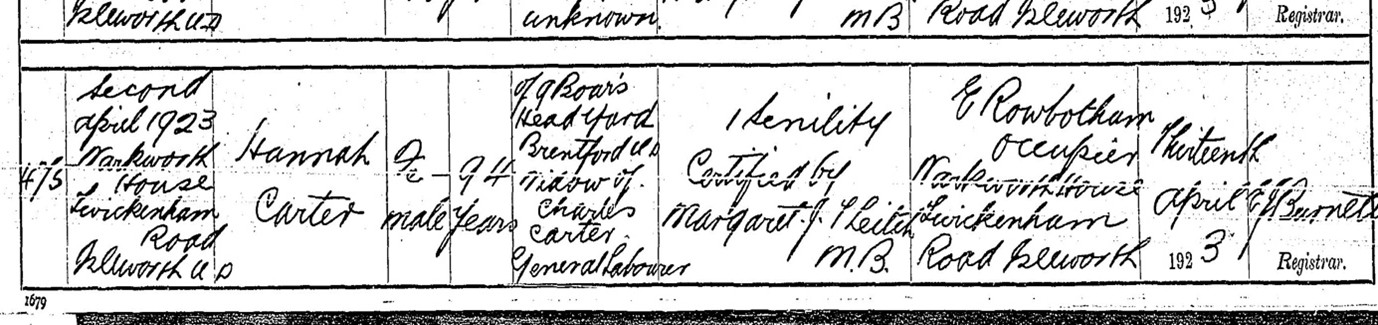 Isleworth U.D
unknown.
M B
Road Isleworth
192
Registrar.
475
Second
April 1923
Warkworth
House
Twickenham
Road
Isleworth U.D
Hannah
Carter
Fe-
male
94
years
of 9 Boar's
Head Yard
Brentford U.D
Widow of
Charles
Carter.
General Labourer
1 Senility
Certified by
Margaret. J.
M.B.
E Rowbotham
Occupier
Warkworth House
Twickenham
Road Isleworth
Thirteenth
April
1923
Burnett
Registrar.
1679